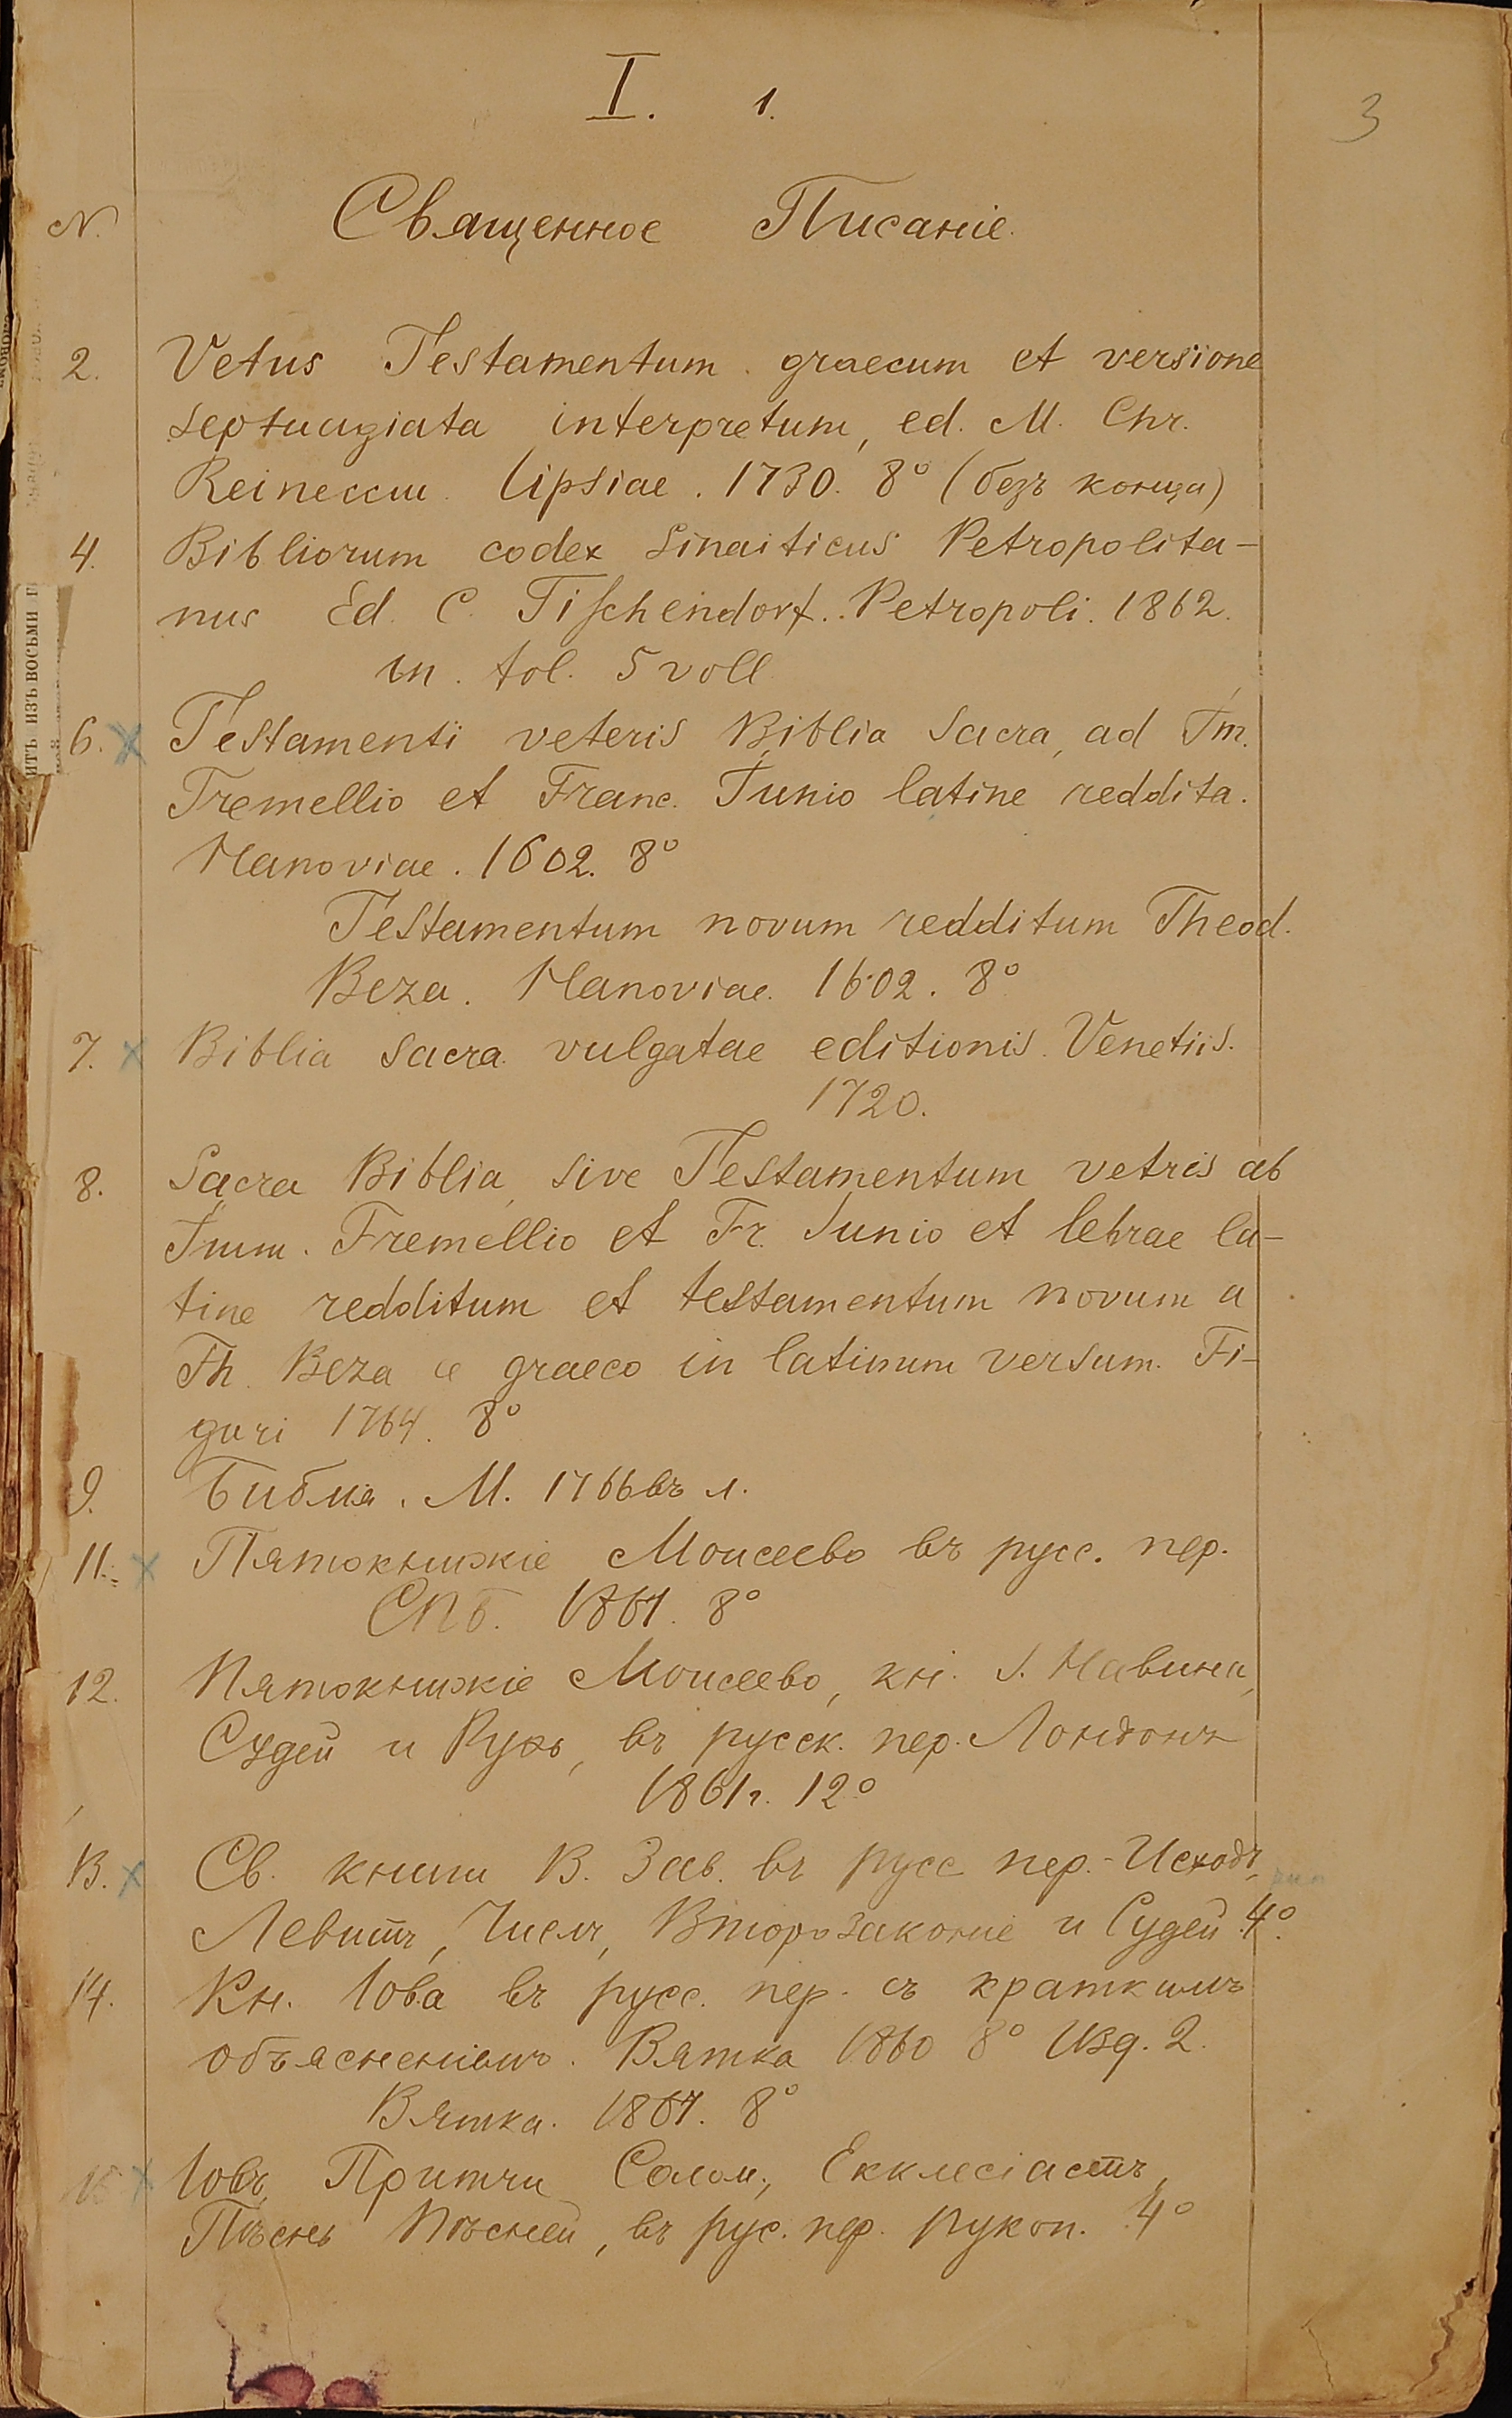 I. 1.
3
N. Священное Писаніе.
2. Vetus Testamentum graecum et versione
septuagiata interpretum, ed. M. Chr.
Reineccii. Lipsiae. 1730. 8° (безъ конца)
4. Bibliorum codex Sinaiticus Petropolita-
nus Ed. C. Tischendorf.. Petropoli. 1862.
in. fol. 5 voll
6. x Testamenti veteris Biblia Sacra, ad Im.
Tremellio et Franc. Junio latine reddita.
Hanoviae. 1602. 8°
Testamentum novum redditum Theod.
Beza. Hanoviae. 1602. 8°
7. x Biblia sacra vulgatae editionis. Venetiis.
1720.
8. Sacra Biblia, sive Testamentum vetris ab
Imm. Fremellio et Fr. Junio et lebrae la-
tine redditum et testamentum novum a
Th. Beza e graeco in latinum versum. Fi-
guri 1764. 8°
9. Библія. М. 1766 въ л.
11. x Пятокнижіе Моисеево въ русс. пер.
СПб. 1861. 8°
12. Пятокнижіе Моисеево, кн. І. Навина,
Судей и Руѳь, въ русск. пер. Лондонъ
1861г. 12°
13. x Св. книги В. Зав. въ русс пер. - Исходъ,
Левитъ, Числъ, Второзаконіе и Судей 4°.
14. Кн. Іова въ русс. пер. съ краткимъ
объясненіемъ. Вятка 1860 8° Изд. 2.
Вятка. 1861. 8°
15 x Іовъ, Притчи Солом., Екклесіастъ,
Пѣснь Пѣсней, въ рус. пер. рукоп. 4°